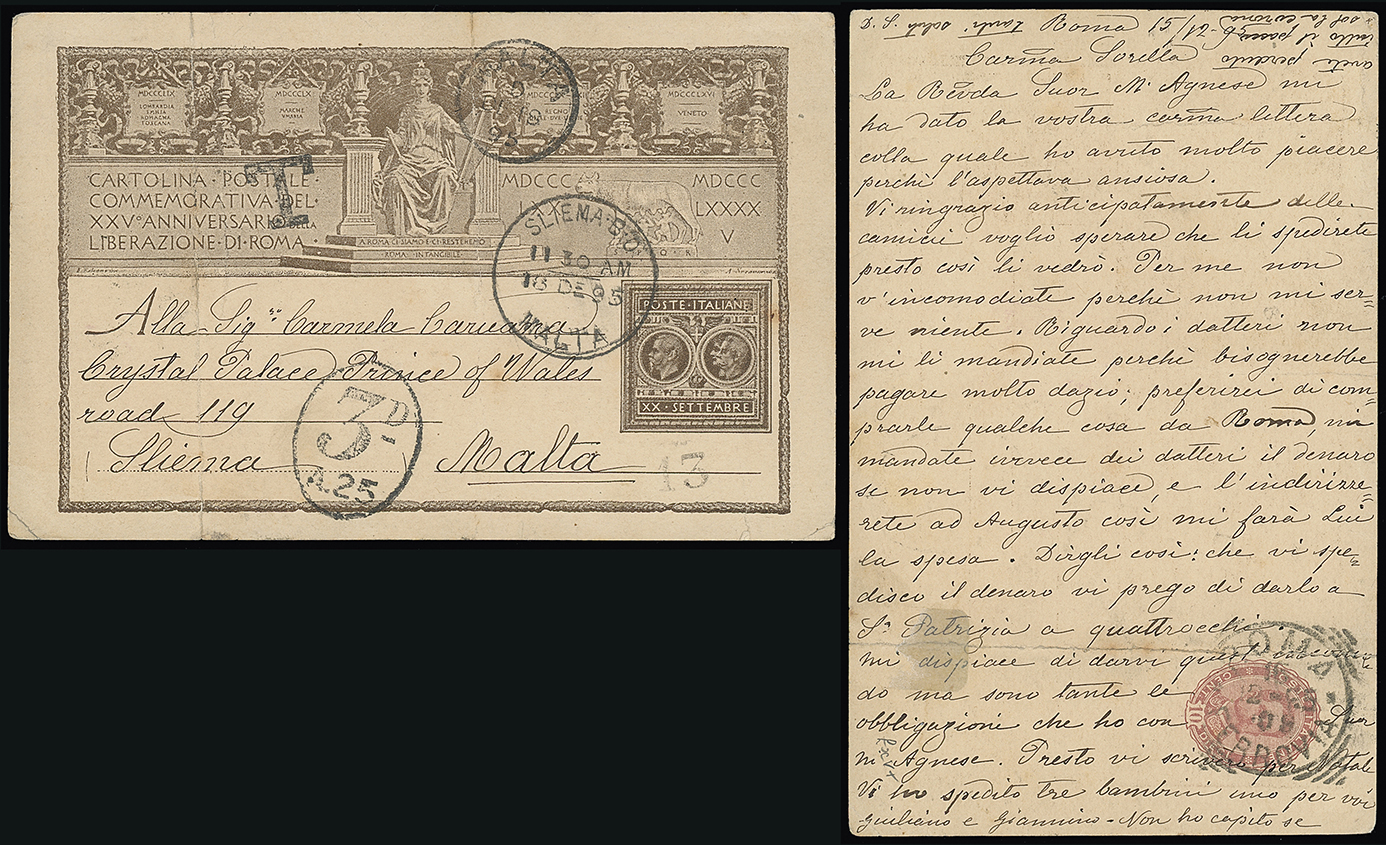 MDCCCLIX
LOMBARDIA
EMILIA
ROMAGNA
TOSCANA
MDCCCLX
MARCHE
UMBRIA
MDCCCLXVI
VENETO
CARTOLINA · POSTALE ·
COMMEMORATIVA · DEL ·
XXV° ANNIVERSARIO DELLA
LIBERAZIONE · DI · ROMA ·
MDCCC
MDCCC
LXXXX
V
A ROMA CI SIAMO E CI RESTEREMO
· ROMA · INTANGIBILE ·
MALTA
95
T
SLIEMA B.O.
11 30 AM
18 DE 95
MALTA
POSTE · ITALIANE
XX · SETTEMBRE
Alla Sigra Carmela Caruana
Crystal Palace Prince of Wales
road 119
(Sliema) Malta
3D.
A.25
13
D. S. tanti saluti Roma 15/12-95
Carma Sorella
La Revda Suor M. Agnese mi
ha dato la vostra carma lettera
colla quale ho avuto molto piacere
perchè l'aspettava ansiosa.
Vi ringrazio anticipatamente delle
camicie voglio sperare che li spedirete
presto così li vedrò. Per me non
v'incomodiate perchè non mi ser=
ve niente. Riguardo i datteri non
mi li mandiate perchè bisognerebbe
pagare molto dazio; preferirei di com=
prarle qualche cosa da Roma, mi
mandate invece dei datteri il denaro
se non vi dispiace, e l'indirizze=
rete ad Augusto così mi farà Lui
la spesa. Dirgli così: che vi spe=
disco il denaro vi prego di darlo a
Sr Patrizia a quattrocchi.
Mi dispiace di darvi quest'
do ma sono tante le
obbligazioni che ho con Suor
M Agnese. Presto vi scriverò per Natale
Vi ho spedito tre bambini uno per voi
Giuliano e Giannino - Non ho capito se
ROMA
FERROVIA